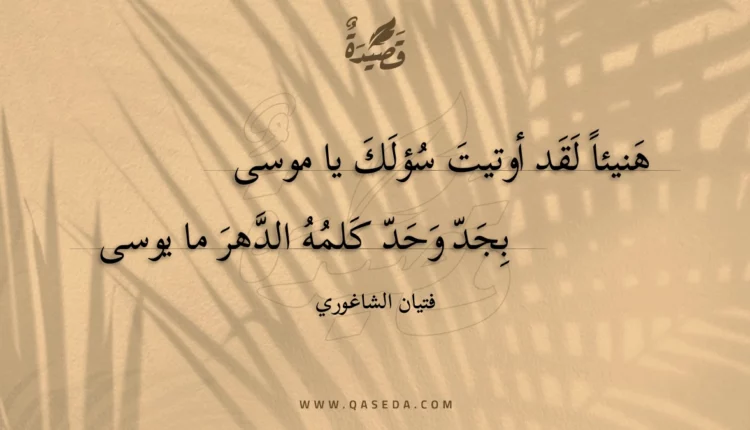 قَصِيْدَةٌ
هَنيئاً لَقَد أوتيتَ سُؤلَكَ يا موسى
بِجَدّ وَحَدّ كَلمُهُ الدَّهرَ ما يوسى
فتيان الشاغوري
WWW.QASEDA.COM